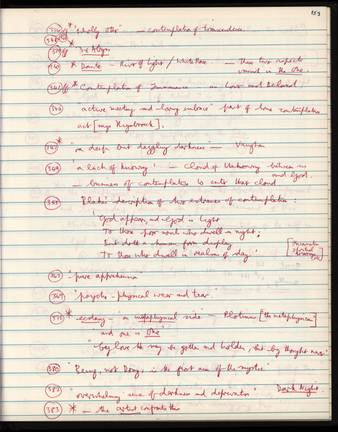 153
"wholly other" — contemplation of transcendence.
* Dante — River of light / White Rose — these two aspects
* Contemplation of Immanence as Love and Beloved
340 "active meeting and loving embrace" part of true contemplative
act [
347 * "a deep but dazzling darkness" — Vaughan
348 "a lack of knowing" — Cloud of Unknowing between us
and God.
— business of contemplative to enter that cloud
Blake's description of two extremes of contemplation:
"God appears, and God is Light
To those poor souls who dwell in night;
But doth a human form display
To those who dwell in realms of day."
"pure apprehension"
369 "psycho-physical wear and tear"
* ecstasy — a metaphysical side — Plotinus [the metaphysician]
and our is One
"by love He may be gotten and holden, but by thought never"
380 "Being, not Doing is the first aim of the mystic"
382 overwhelming sense of darkness and deprivation Dark Night
383 * — the artist